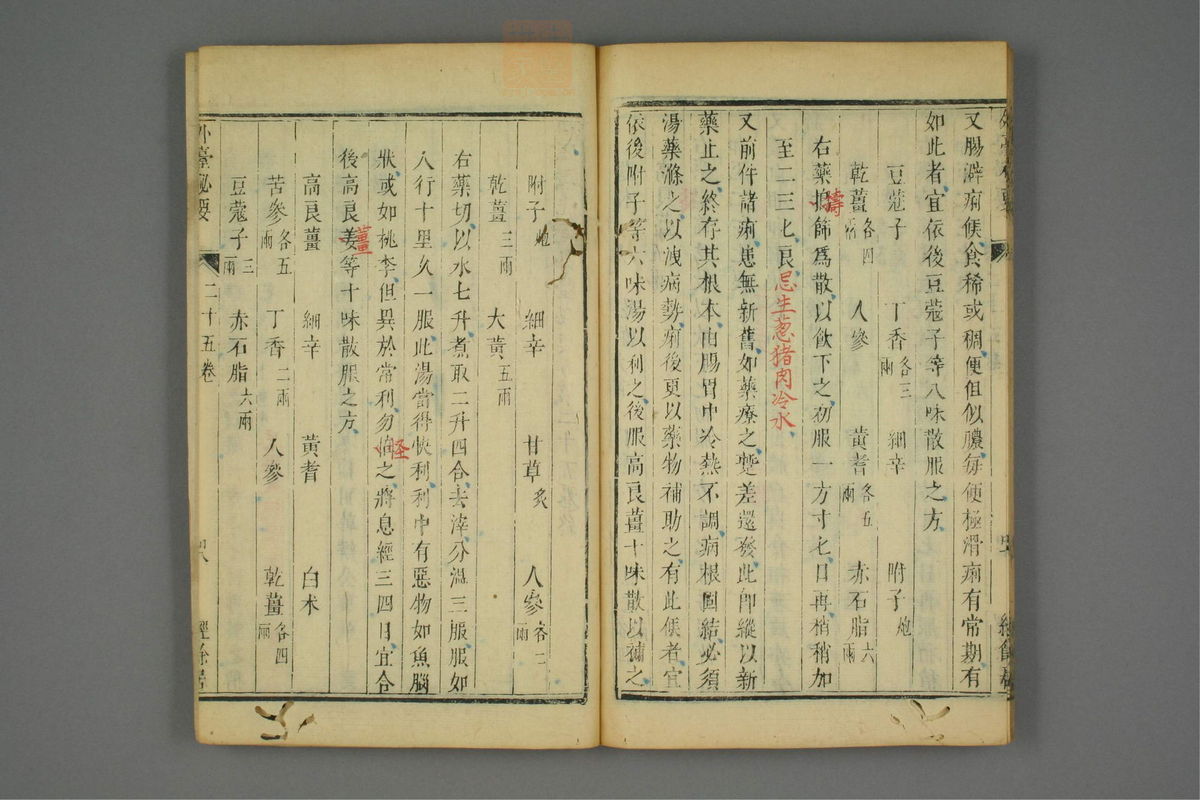 又腸澼痢候食稀或稠便但似膿每便極滑痢有常期有
如此者宜依後豆蔻子等八味散服之方
豆蔻子 丁香各三兩 細辛 附子炮
乾薑各四兩 人參 黃耆各五兩 赤石脂六兩
右藥擣篩爲散以飲下之初服一方寸匕日再稍稍加
至二三匕良忌生葱猪肉冷水
又前件諸痢患無新舊如藥療之蹔差還發此即縱以新
藥止之終存其根本由腸胃中冷熱不調病根固結必須
湯藥滌之以洩病勢痢後更以藥物補助之有此候者宜
依後附子等六味湯以利之後服高良薑十味散以補之
附子炮 細辛 甘草炙 人參各二兩
乾薑三兩 大黃五兩
右藥切以水七升煮取二升四合去滓分溫三服服如
人行十里久一服此湯當得快利利中有惡物如魚腦
狀或如桃李但異於常利勿怪之將息經三四日宜合
後高良薑等十味散服之方
高良薑 細辛 黃耆 白朮
苦參各五兩 丁香二兩 人參 乾薑各四兩
豆蔻子三兩 赤石脂六兩
外臺秘要 二十五卷 經餘居